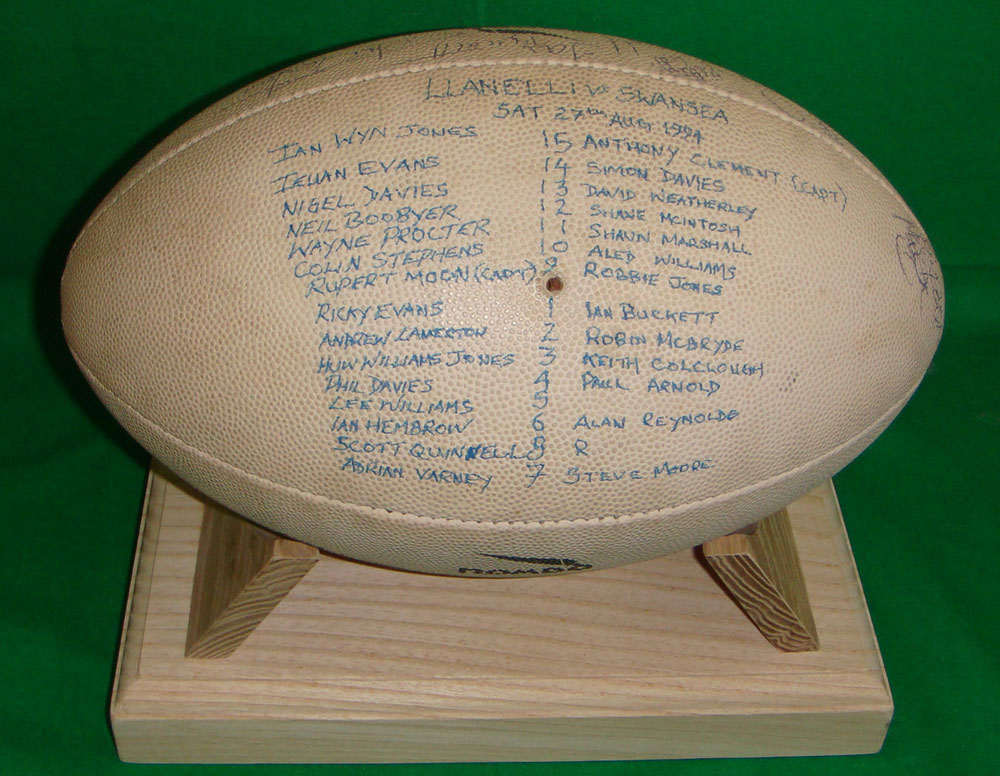 LLANELLI VS SWANSEA
SAT 27TH AUG 1994
IAN WYN JONES 15 ANTHONY CLEMENT (CAPT)
IEUAN EVANS 14 SIMON DAVIES
NIGEL DAVIES 13 DAVID WEATHERLEY
NEIL BOOBYER 12 SHANE MCINTOSH
WAYNE PROCTER 11 SHAUN MARSHALL
COLIN STEPHENS 10 ALED WILLIAMS
RUPERT MOON (CAPT) 9 ROBBIE JONES
RICKY EVANS 1 IAN BUCKETT
ANDREW LAMERTON 2 ROBIN MCBRYDE
HUW WILLIAMS JONES 3 KEITH COLCLOUGH
PHIL DAVIES 4 PAUL ARNOLD
LEE WILLIAMS 5
IAN HEMBROW 6 ALAN REYNOLDS
SCOTT QUINNELL 8 R
ADRIAN VARNEY 7 STEVE MOORE